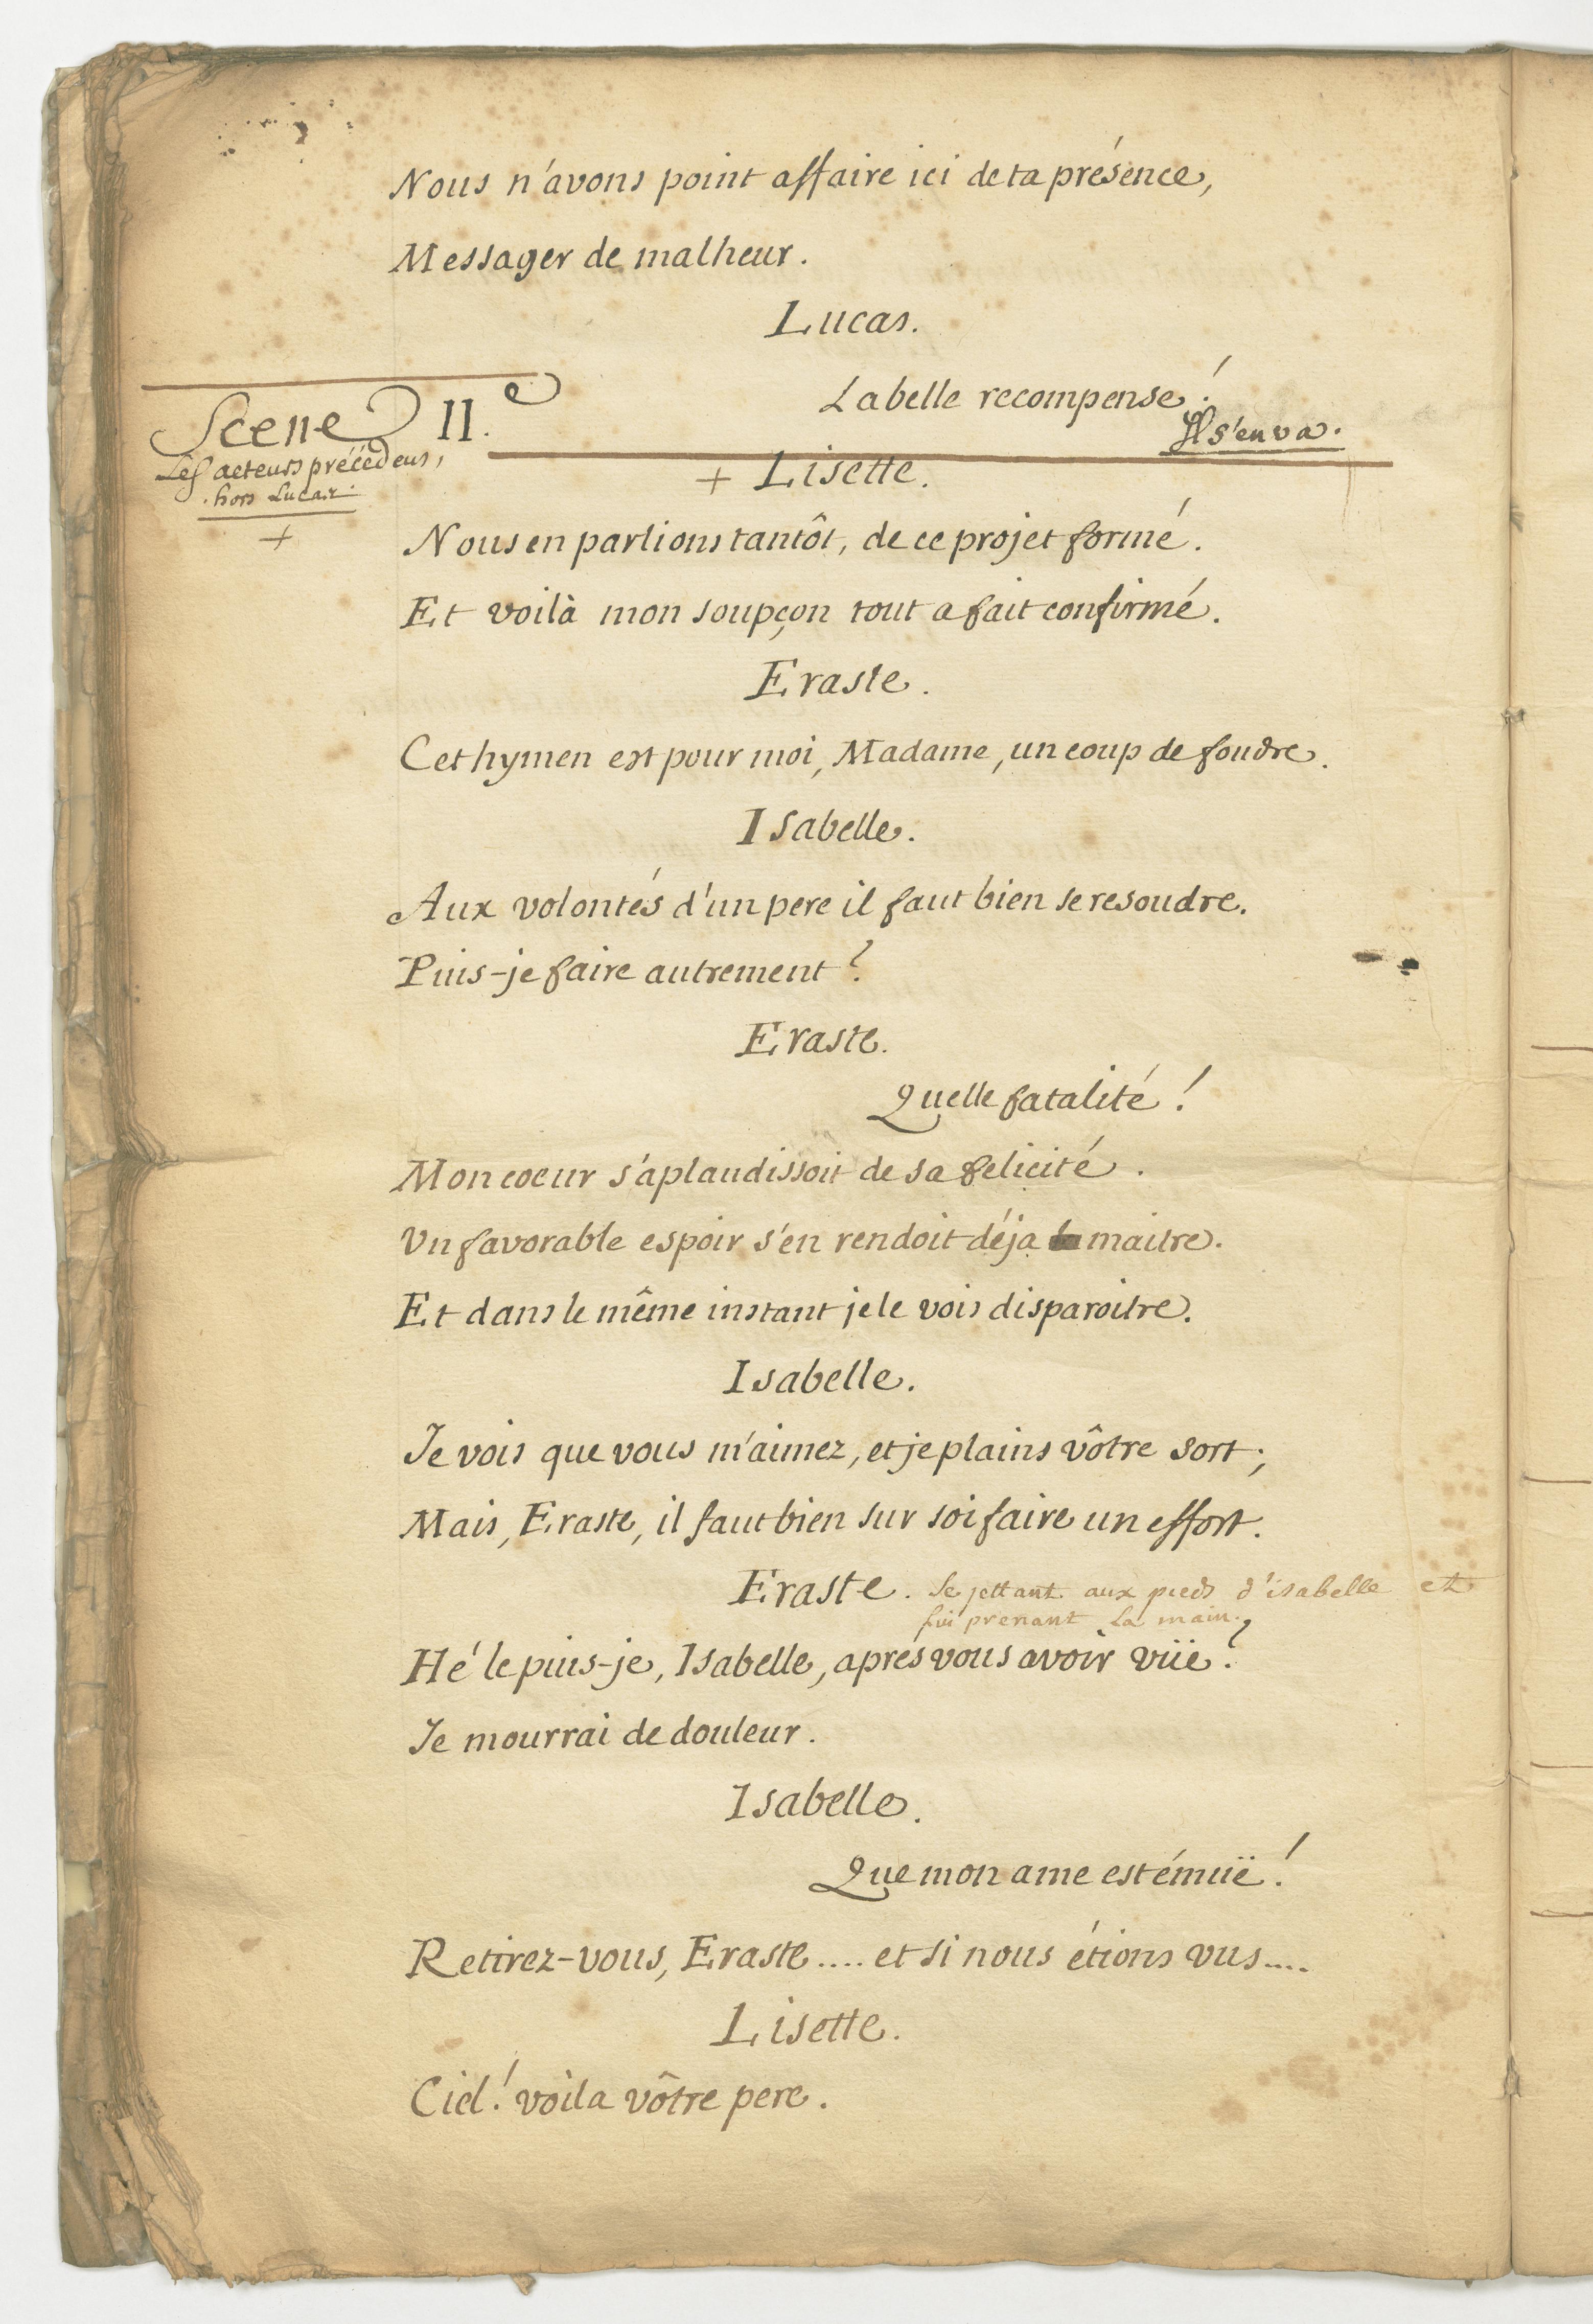 Nous n'avons point affaire ici de ta présence,
Messager de malheur.
Lucas.
La belle recompense!
Il s'en va.
Scene IIe.
Les acteurs précédens,
hors Lucas.
+
+ Lisette.
Nous en parlions tantôt, de ce projet formé.
Et voilà mon soupçon tout a fait confirmé.
Eraste.
Cet hymen est pour moi, Madame, un coup de foudre.
Isabelle.
Aux volontés d'un pere il faut bien se resoudre.
Puis-je faire autrement?
Eraste.
Quelle fatalité!
Mon coeur s'aplaudissoit de sa felicité.
Un favorable espoir s'en rendoit déja maitre.
Et dans le même instant je le vois disparoitre.
Isabelle.
Je vois que vous m'aimez, et je plains vôtre sort;
Mais, Eraste, il faut bien sur soi faire un effort.
Eraste. Se jettant aux pieds d'isabelle et
lui prenant la main.
Hé le puis-je, Isabelle, aprés vous avoir vüe?
Je mourrai de douleur.
Isabelle.
Que mon ame est émuë!
Retirez-vous, Eraste.... et si nous étions vus....
Lisette.
Ciel! voila vôtre pere.